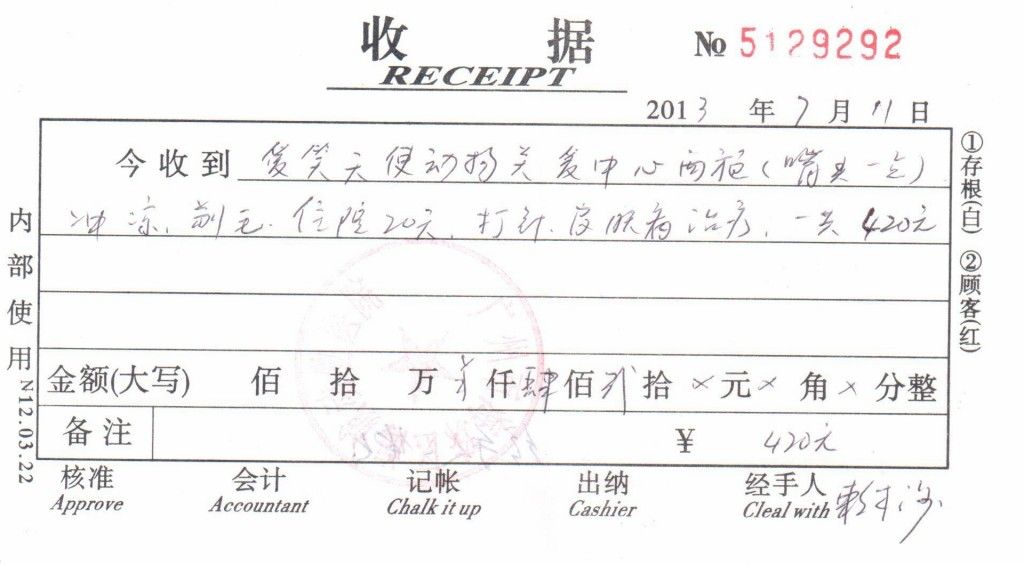 收 据
RECEIPT
№ 5129292
2013 年 7 月 11 日
今收到 爱笑天使动物关爱中心西施(嘴
冲凉、剃毛、住院20天、打针、皮肤病治疗,一共420元
金额(大写) 佰 拾 万 仟肆佰贰拾×元×角×分整
备注 ¥ 420元
核准 会计 记帐 出纳 经手人
Approve Accountant Chalk it up Cashier Cleal with
内部使用 N12.03.22
①存根(白) ②顾客(红)
广州